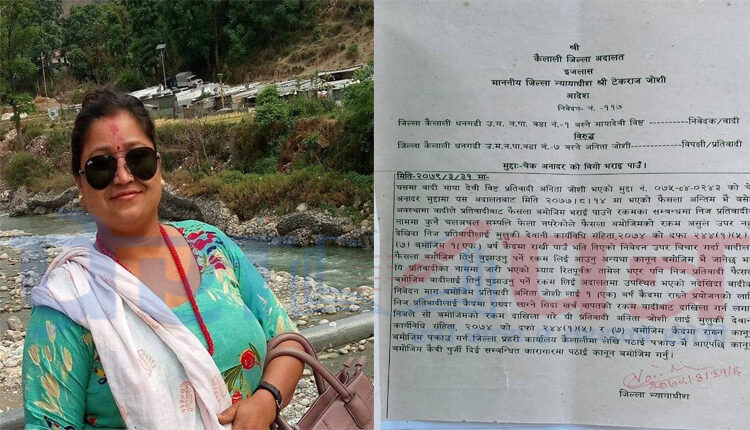 श्री
कैलाली जिल्ला अदालत
इजलास
माननीय जिल्ला न्यायाधीश श्री टेकराज जोशी
आदेश
निवेदन नं. -११७
जिल्ला कैलाली धनगढी उ.म. न.पा. वडा नं.-१ बस्ने मायादेवी विष्ट ---निवेदक/वादी
विरुद्ध
जिल्ला कैलाली धनगढी उ.म.न.पा.वडा नं.-७ बस्ने अनिता जोशी---विपक्षी/प्रतिवादी
मुद्दाः-चेक अनादर को बिगो भराई पाउँ।
मिति-२०७९/३/३१ मा-
यसमा वादी माया देवी विष्ट प्रतिवादी अनिता जोशी भएको मुद्दा नं. ०७५-८४-०९४३ को चे
अनादर मुद्दामा यस अदालतबाट मिति २०७७।८।१४ मा भएको फैसला अन्तिम भै बसे
अवस्थामा वादीले प्रतिवादीबाट फैसला बमोजिम भराई पाउने रकमका सम्बन्धमा निज प्रतिवादी
नाममा कुनै चलअचल सम्पत्ति फेला नपरेकोले फैसला बमोजिमको रकम असुल उपर न
देखिदा निज प्रतिवादीलाई मुलुकी देवानी कार्यविधि संहिता,२०७४ को दफा २४४(१)(५)
(७) बमोजिम १(एक) वर्ष कैदमा राखी पाउँ भति दिएको निवेदन उपर विचार गर्दा वादीला
फैसला बमोजिम तिर्नु बुझाउनु पर्ने रकम लिई आउनु अन्यथा कानून बमोजिम भै जानेछ भ
यि प्रतिवादीका नाममा जारी भएको म्याद रितपूर्वक तामेल भएर पनि निज प्रतिवादी फैसला
बमोजिम वादीलाई तिर्नु बुझाउनु पर्ने रकम लिई अदालतमा उपस्थित भएको देखिदा वादीको
निवेदन माग बमोजिम प्रतिवादी अनिता जोशी लाई १ (एक) वर्ष कैदमा राख्ने प्रयोजनको ला
निज प्रतिवादीलाई कैदमा राख्दा लाग्ने सिदा खर्च बापतको रकम वादीबाट दाखिला गर्न लगा
निजले सो बमोजिमको रकम दाखिला गरे यी प्रतिवादी अनिता जोशी लाई मुलुकी देवा
कार्यविधि संहिता, २०७४ को दफा २४४(१)(५) र (७) बमोजिम कैदमा राख्न कानून
बमोजिम पक्राउ गर्न जिल्ला प्रहरी कार्यालय कैलालीमा लेखि पठाई पक्राउ भै आएपछि कानून
बमोजिम कैदी पुर्जी दिई सम्बन्धित कारागारमा पठाई कानून बमोजिम गर्नु।
२०७९।३।३१।६
जिल्ला न्यायाधीश